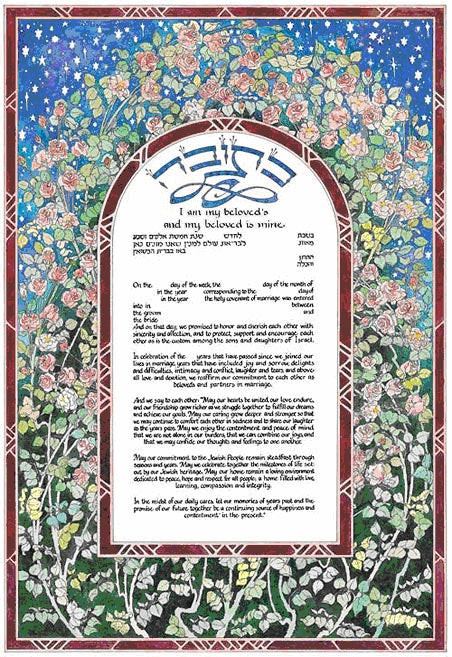 כתובה
I am my beloved's
and my beloved is mine.
בשבת לחדש שנת חמשת אלפים ושבע
מאות לבריאת עולם למנין שאנו מונים כאן
באו בברית הנשואין
החתן
והכלה
On the day of the week, the day of the month of
in the year corresponding to the day of
in the year the holy covenant of marriage was entered
into in between
the groom and
the bride
And on that day, we promised to honor and cherish each other with
sincerity and affection, and to protect, support and encourage each
other as is the custom among the sons and daughters of Israel.
In celebration of the years that have passed since we joined our
lives in marriage, years that have included joy and sorrow, delights
and difficulties, intimacy and conflict, laughter and tears, and above
all love and devotion, we reaffirm our commitment to each other as
beloveds and partners in marriage.
And we say to each other: "May our hearts be united, our love endure,
and our friendship grow richer as we struggle together to fulfill our dreams
and achieve our goals. May our caring grow deeper and stronger so that
we may continue to comfort each other in sadness and to share our laughter
as the years pass. May we enjoy the contentment and peace of mind,
that we are not alone in our burdens, that we can combine our joys, and
that we may confide our thoughts and feelings to one another.
May our commitment to the Jewish People remain steadfast through
seasons and years. May we celebrate together the milestones of life set
by our Jewish heritage. May our home remain a loving environment
dedicated to peace, hope and respect for all people; a home filled with love,
learning, compassion and integrity.
In the midst of our daily cares, let our memories of years past and the
promise of our future together be a continuing source of happiness and
contentment in the present."